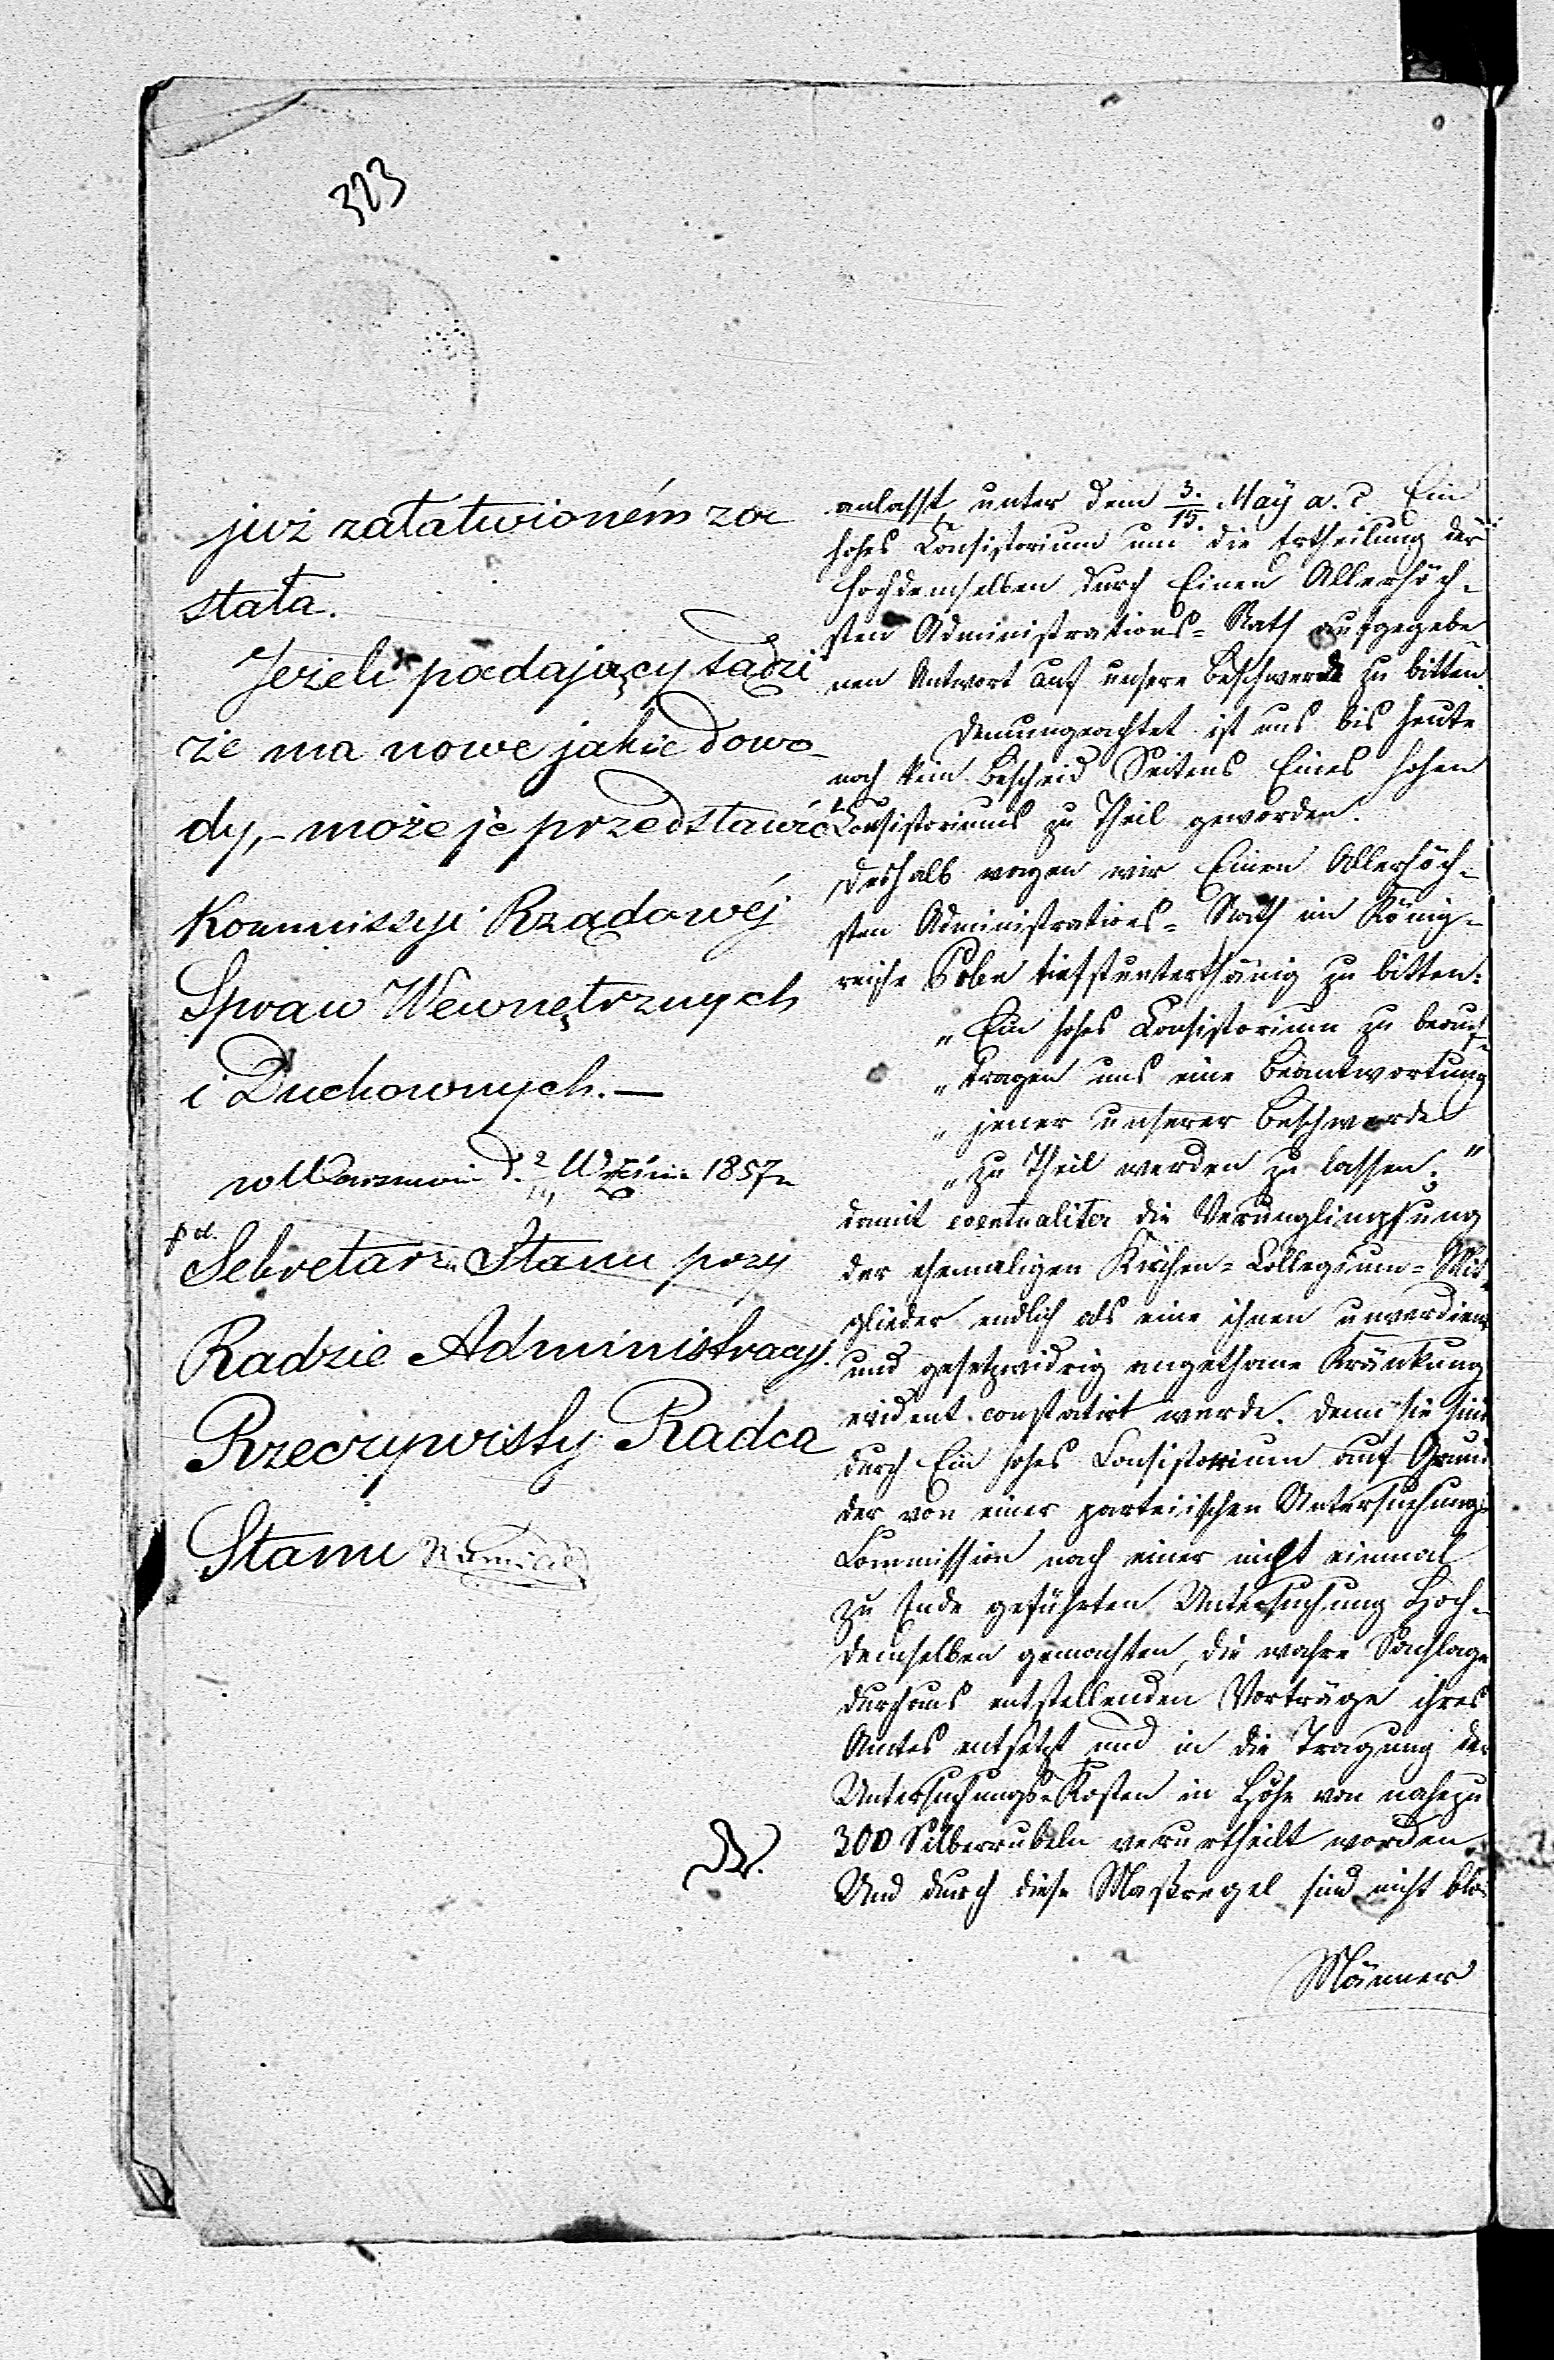 323
już załatwioném zo
stała.
Jeżeli podający sądzi
że ma nowe jakie dowo-
dy, - może je przedstawić
Kommissyi Rządowéj
Spraw Wewnętrznych
i Duchownych. —
w Warszawie d. 2/14 Września 1857 r.
p.o.
Sekretarza Stanu przy
Radzie Administracyj.
Rzeczywisty Radca
Stanu
anlasst, unter dem 3./15. May a. c. Ein
hohes Consistorium um die Ertheilung der
Hochdemselben durch Einen Allerhöch-
sten Administrations-Rath aufgegebe
nen Antwort auf unsere Beschwerde zu bitten.
Demungeachtet ist uns bis heute
noch kein Bescheid Seitens Eines hohen
Consistoriums zu Theil geworden.
Deshalb wagen wir Einen Allerhöch-
sten Administrations-Rath im König-
reiche Polen tiefstunterthänig zu bitten:
„Ein hohes Consistorium zu beauf-
„tragen uns eine Beantwortung
„jener unserer Beschwerde
„zu Theil werden zu lassen;"
damit eventualiter die Verunglimpfung
der ehemaligen Kirchen-Collegium-Mit-
glieder endlich als eine ihnen unverdient
und gesetzwidrig angethane Kränkung
evident constatirt werde. Denn sie sind
durch Ein hohes Consistorium auf Grund
der von einer parteiischen Untersuchungs-
Commission nach einer nicht einmal
zu Ende geführten Untersuchung Hoch-
demselben gemachten, die wahre Sachlage
durchaus entstellenden Vorträge ihres
Amtes entsetzt und in die Tragung der
Untersuchungs-Kosten in Höhe von nahezu
300 Silberrubeln verurtheilt worden.
Und durch diese Maßregel sind nicht blos
Männer